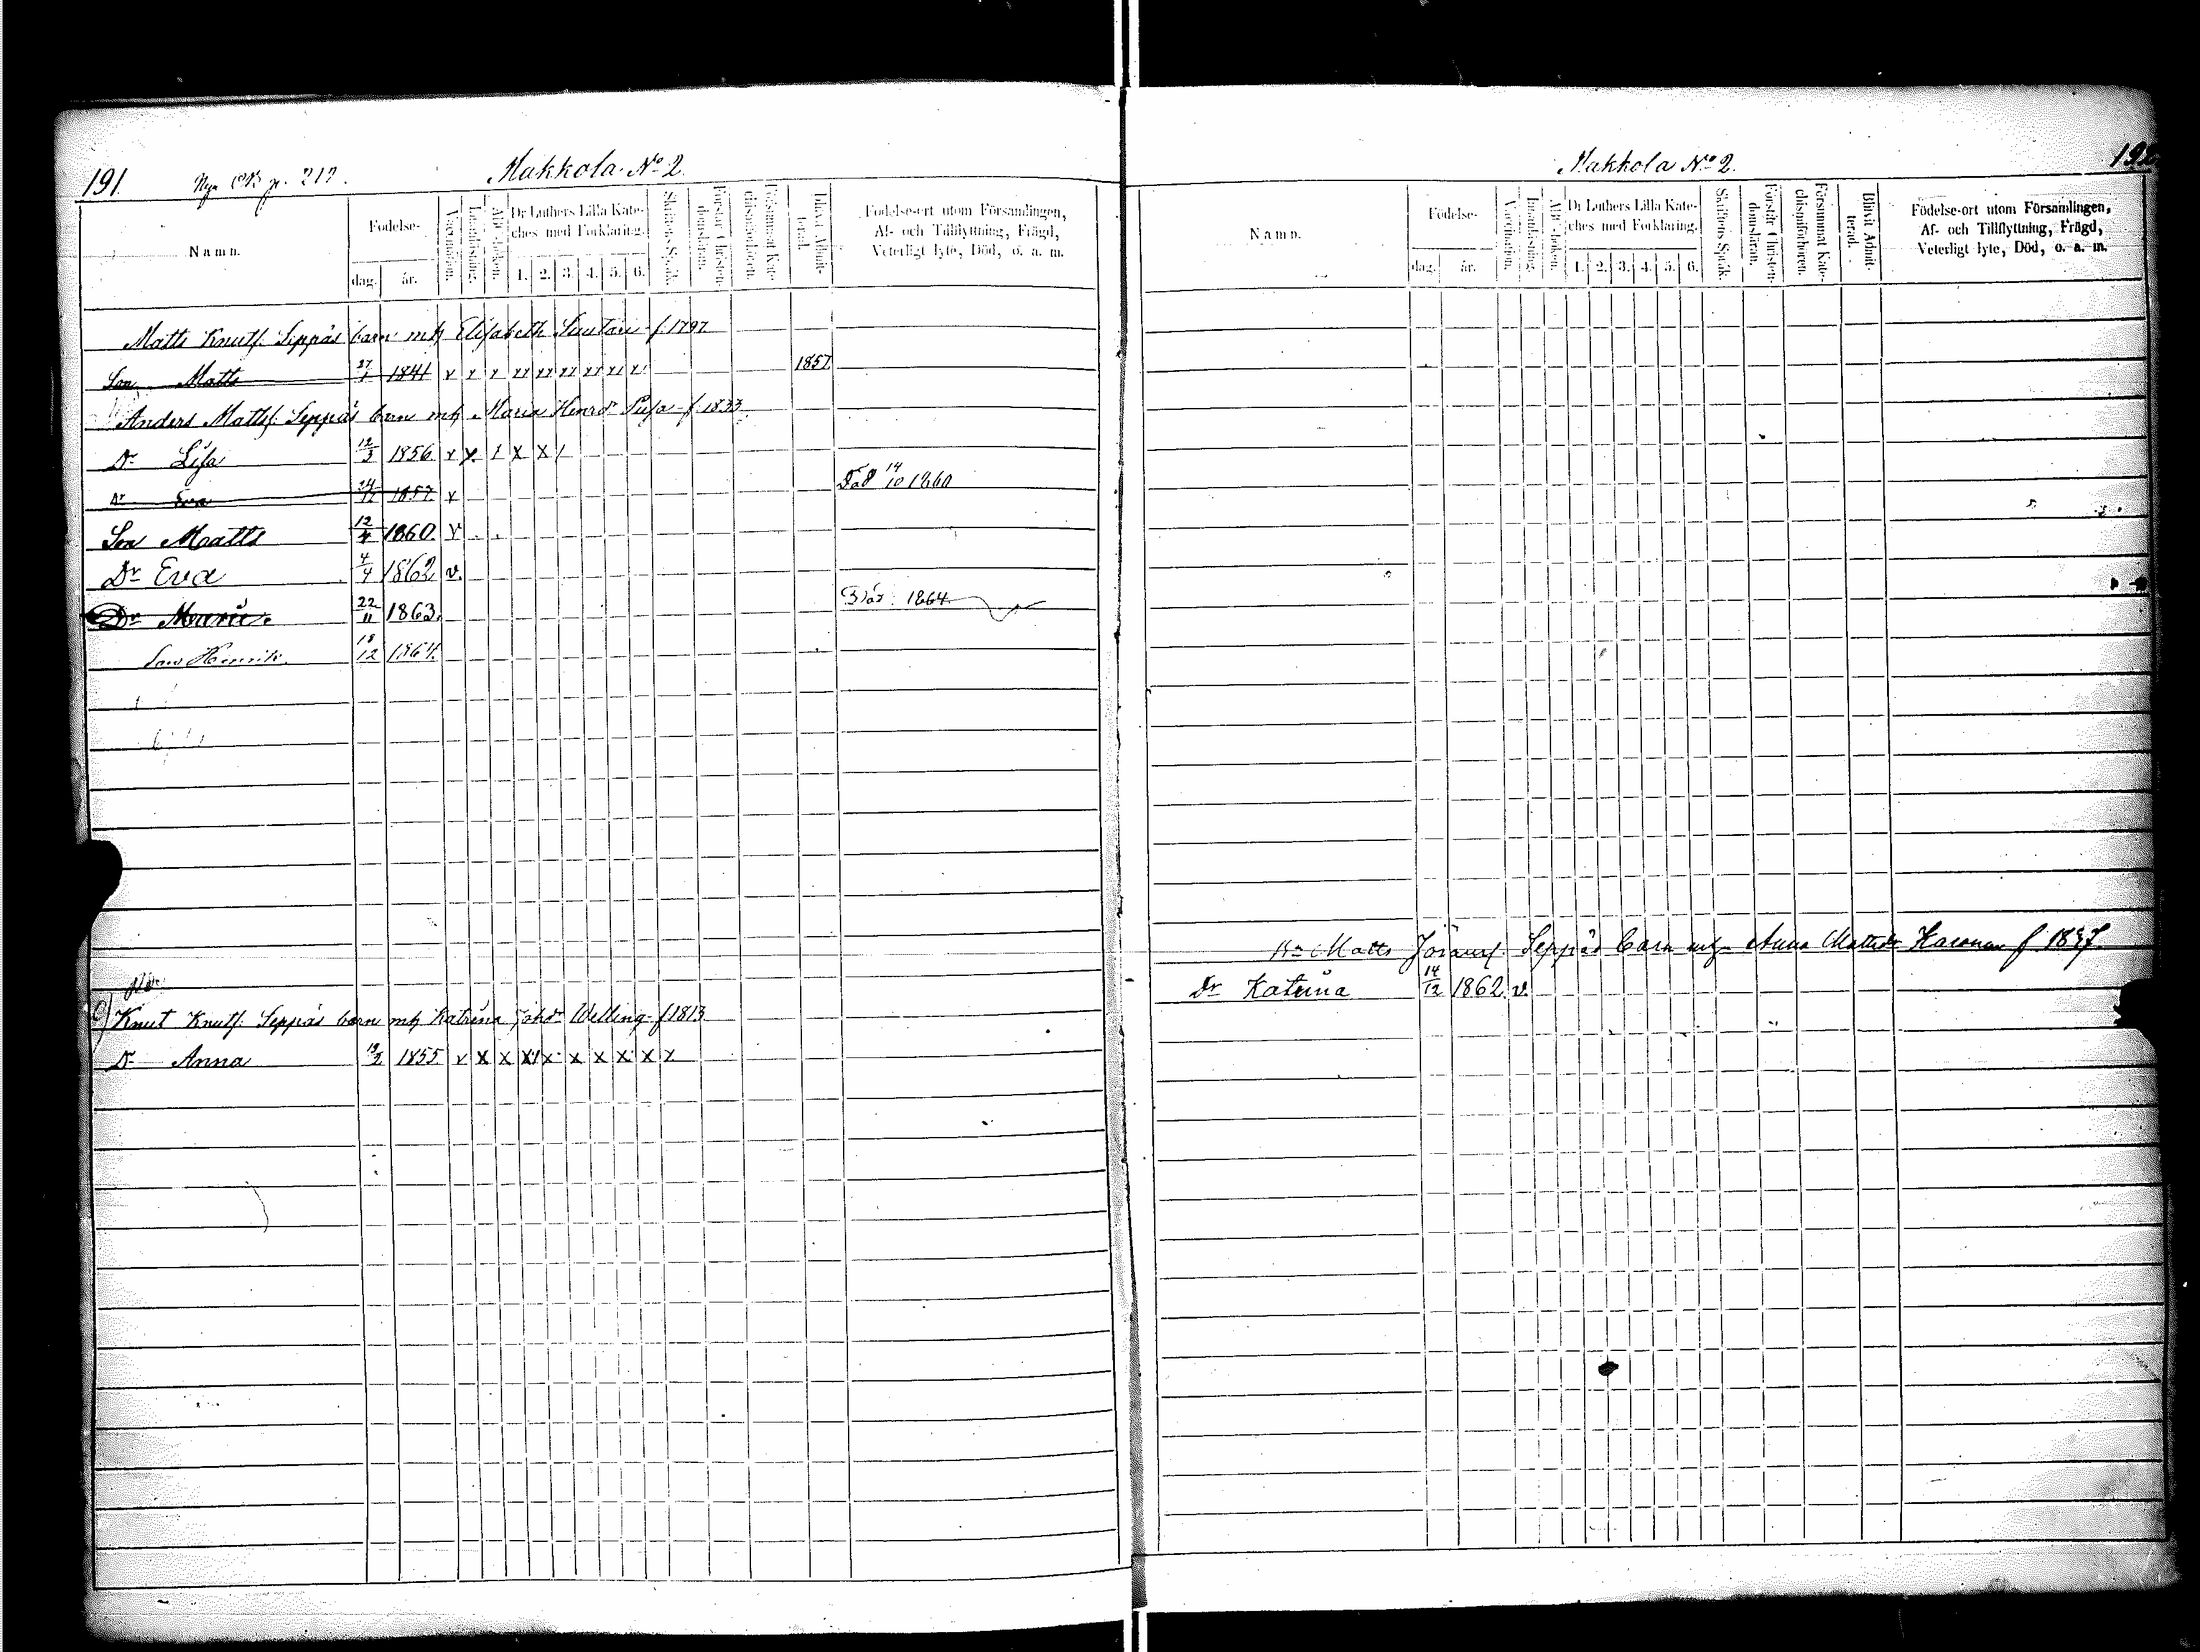 191.
Nya CB p. 212.
Makkola No 2.
Namn.
Födelse-
dag.
år.
Vaccination.
Innanläsning.
Abc-boken.
Dr Luthers Lilla Kate-
ches med Förklaring.
1. 2. 3. 4. 5. 6.
Skriftens Språk.
Förstår Christen-
domsläran.
Försummat Kate-
chismiförhören.
Blivit Admit-
terad.
Födelse-ort utom Församlingen,
Af- och Tillflyttning, Frägd,
Veterligt lyte, Död, o. a. m.
Matts Knutss. Seppäs barn mh Elisabeth Sautari f. 1797
Son Matts 27/1 1841 x x x xx xx xx xx xx x 1857
Anders Mattss. Seppäs barn mh Maria Henrdr f. 1833
Dr Lisa 12/3 1856 v x 1 x x /
Dr Eva 1857 v Död 14/10 1860
Son Matts 12/4 1860. v
Dr Eva 4/4 1862 v.
Dr Maria 22/11 1863. Död 1864
Son Henrik 18/12 1864.
Knut Knutss. Seppäs barn mh Katrina Johdr Welling f 1813
Dr Anna 19/2 1855 v x x x x x x x x x
Makkola No 2.
192
Namn.
Födelse-
dag.
år.
Vaccination.
Innanläsning.
Abc-boken.
Dr Luthers Lilla Kate-
ches med Förklaring.
1. 2. 3. 4. 5. 6.
Skriftens Språk.
Förstår Christen-
domsläran.
Försummat Kate-
chismiförhören.
Blivit Admit-
terad.
Födelse-ort utom Församlingen,
Af- och Tillflyttning, Frägd,
Veterligt lyte, Död, o. a. m.
Matts Göranss. Seppäs barn mh Anna Mattsdr f 1837.
Dr Katrina 14/12 1862. v.